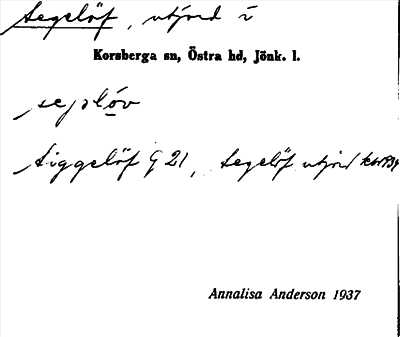 Segelöf, utjord i
Korsberga sn, Östra hd, Jönk. l.
Siggelöf G 21, Segelöf utjord
Annalisa Anderson 1937